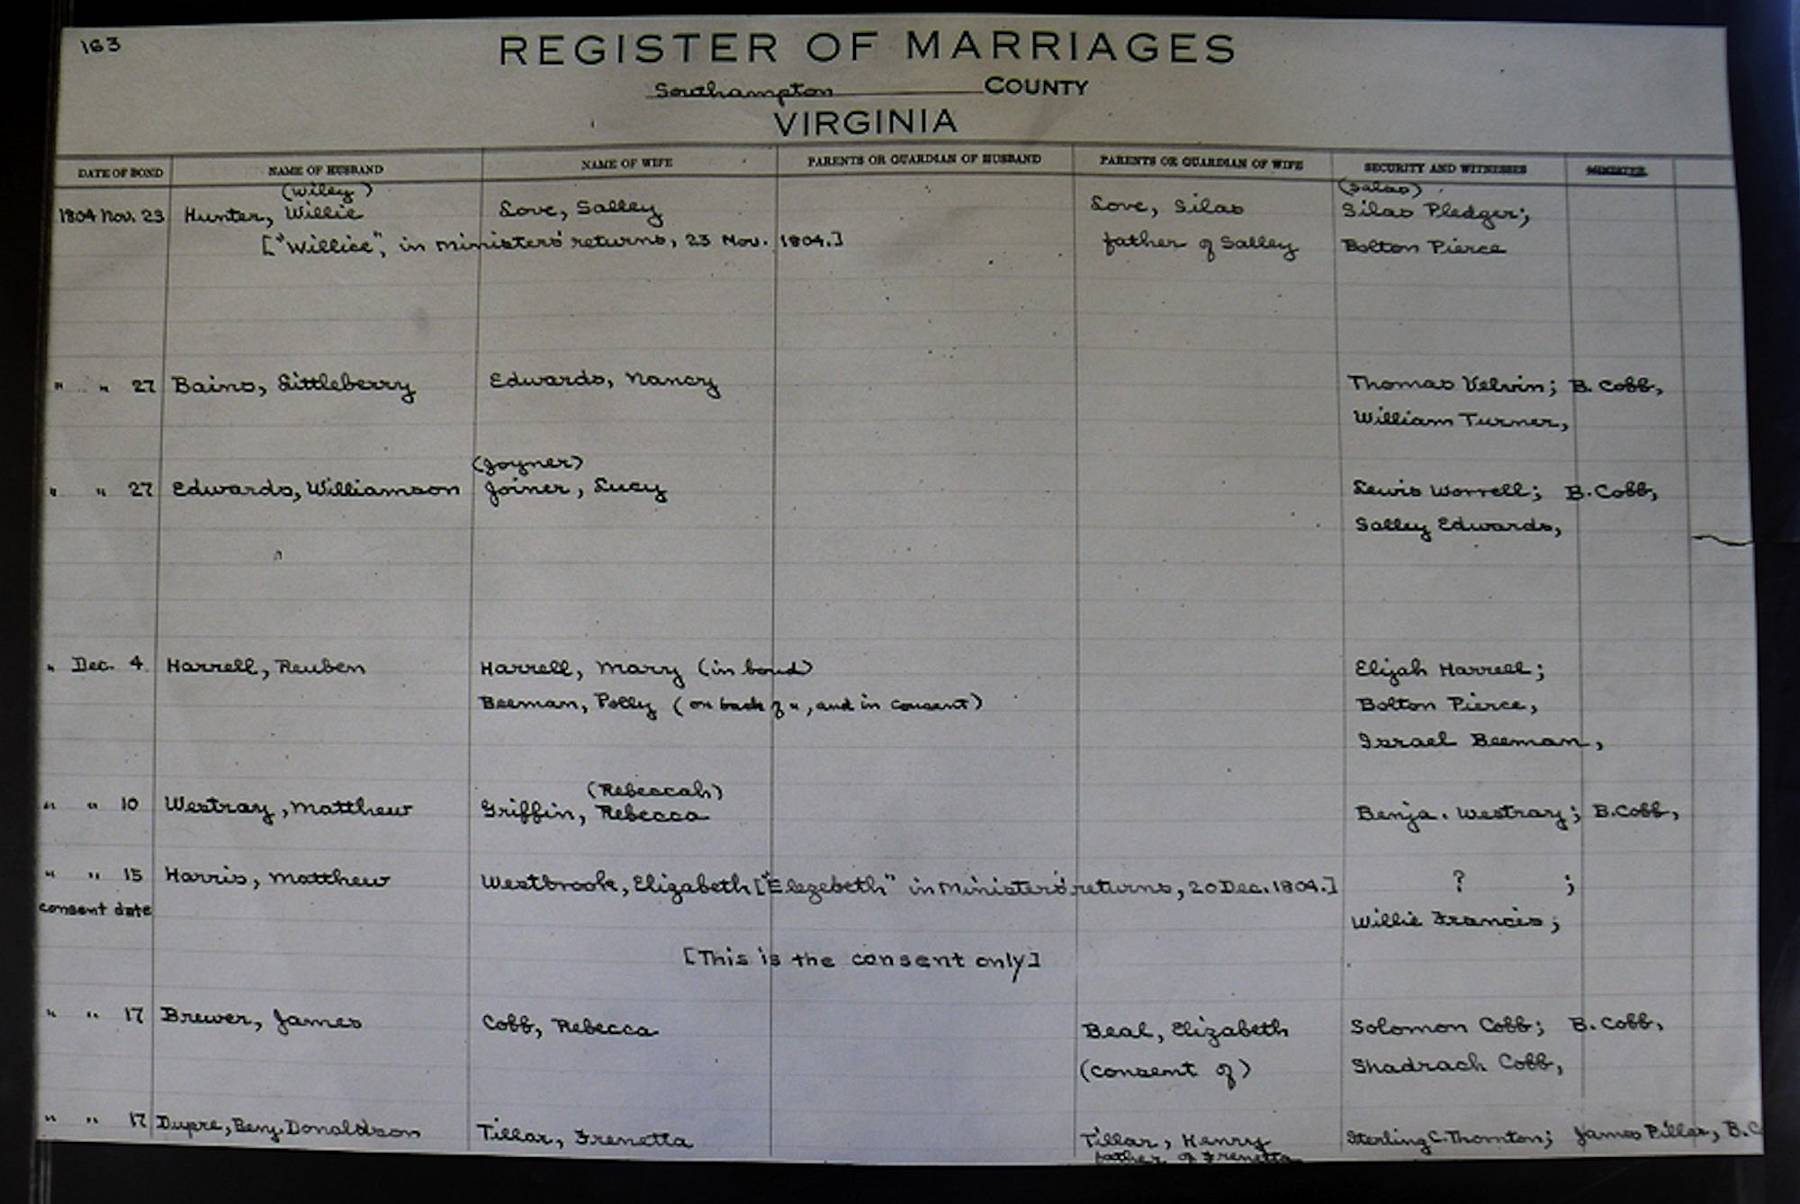 163
REGISTER OF MARRIAGES
Southampton COUNTY
VIRGINIA
DATE OF BOND NAME OF HUSBAND NAME OF WIFE PARENTS OR GUARDIAN OF HUSBAND PARENTS OR GUARDIAN OF WIFE SECURITY AND WITNESSES MINISTER
(Wiley) (Salas)
1804 Nov. 23 Hunter, Willie Love, Salley Love, Silas Silas Pledger;
["Willice", in Ministers' returns, 23 Nov. 1804.] father of Salley Bolton Pierce
" " 27 Bains, Littleberry Edwards, Nancy Thomas Velvin; B. Cobb,
William Turner,
(Joyner)
" " 27 Edwards, Williamson Joiner, Lucy Lewis Worrell; B. Cobb,
Salley Edwards,
" Dec. 4 Harrell, Reuben Harrell, Mary (in bond) Elijah Harrell;
Beeman, Polly (on back of ", and in consent) Bolton Pierce,
Israel Beeman,
(Rebeccah)
" " 10 Westray, Matthew Griffin, Rebecca Benja. Westray; B. Cobb,
" " 15 Harris, Matthew Westbrook, Elizabeth ["Elezebeth" in Ministers' returns, 20 Dec. 1804.] ? ;
consent date Willie Francis;
[This is the consent only]
" " 17 Brewer, James Cobb, Rebecca Beal, Elizabeth Solomon Cobb; B. Cobb,
(consent of) Shadrach Cobb,
" " 17 Dupre, Benj. Donaldson Tillar, Frenetta Tillar, Henry Sterling C. Thornton; James Pillar, B. C
father of Frenetta